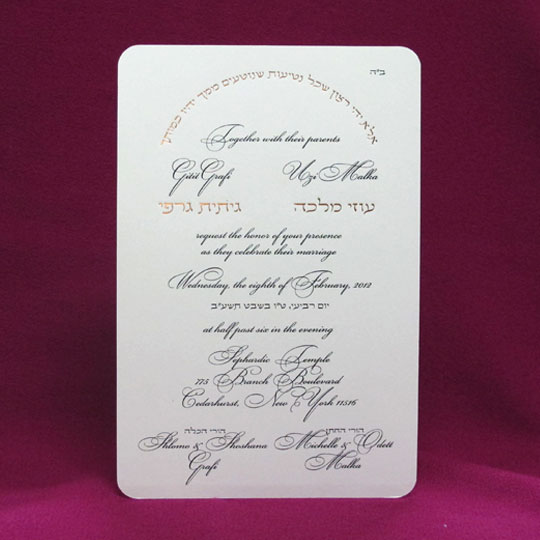 ב״ה
אלא יהי רצון שכל נטיעות שנוטעים ממך יהיו כמותך
Together with their parents
Gitit Grafi Uzi Malka
גיתית גרפי עוזי מלכה
request the honor of your presence
as they celebrate their marriage
Wednesday, the eighth of February, 2012
יום רביעי, ט״ו בשבט תשע״ב
at half past six in the evening
Sephardic Temple
775 Branch Boulevard
Cedarhurst, New York 11516
הורי הכלה הורי החתן
Shlomo & Shoshana Michelle & Odett
Grafi Malka